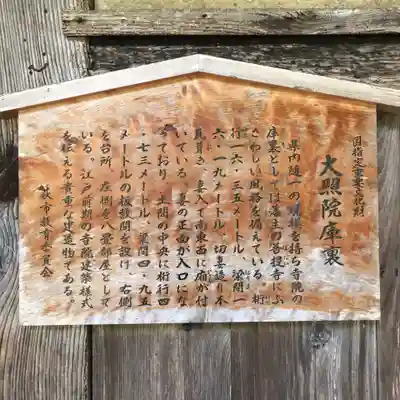 国指定重要文化財
大照院庫裏
県内随一の規模を持ち寺院の
庫裏としては藩主の菩提寺にふ
さわしい風格を備えている。桁
行一六・三五メートル、梁間一
六・一九メートル、切妻造り本
瓦葺き、妻入で南東西に庇が付
いている。妻の正面が入口にな
っており、土間の中央に桁行四
・七三メートル、梁間四・九五
メートルの板敷間を設け、右側
を台所、左側を八畳部屋として
いる。江戸前期の寺院建築様式
を伝える貴重な建造物である。
萩市教育委員会